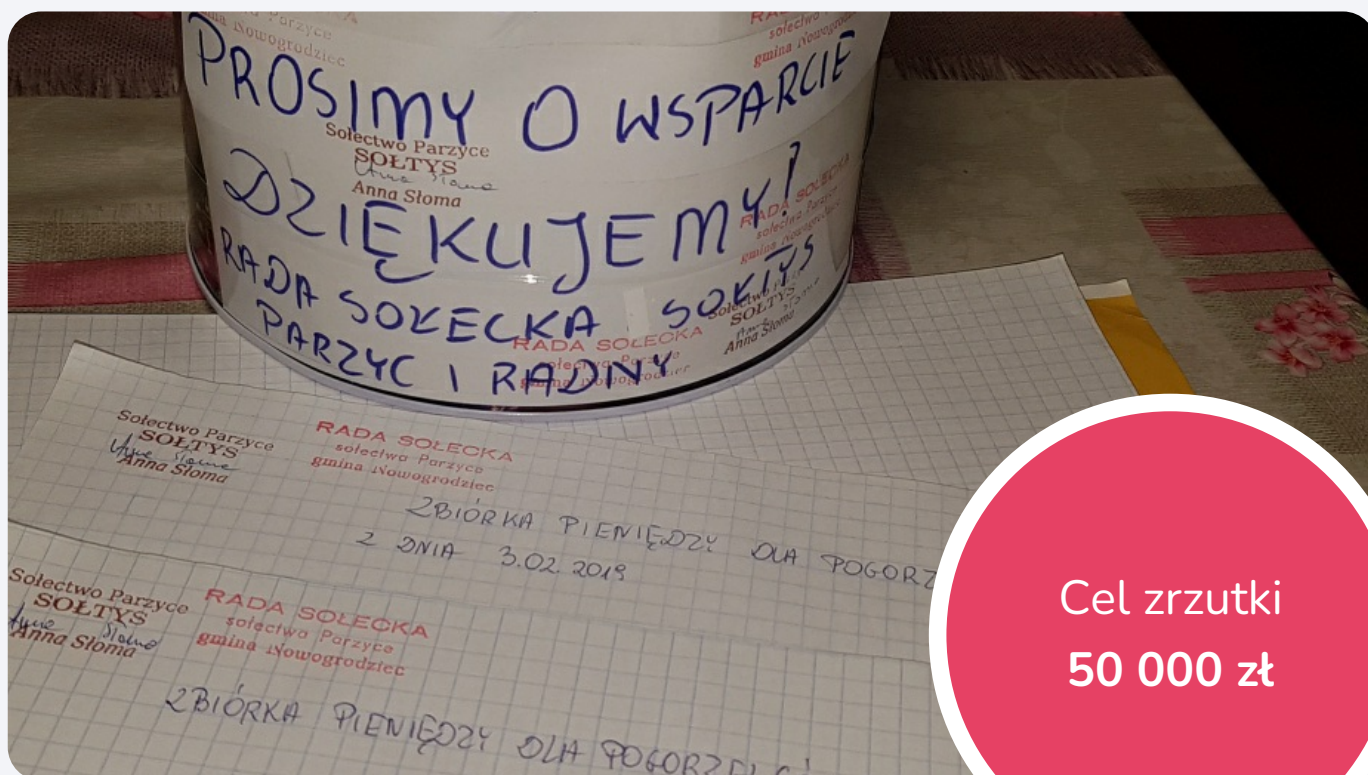 Parzyce
Nowogrodziec
RADA SOŁECKA
sołectwo Parzyce
gmina Nowogrodziec
PROSIMY O WSPARCIE
Sołectwo Parzyce
SOŁTYS
Anna Słoma
DZIĘKUJEMY!
RADA SOŁECKA
sołectwo Parzyce
gmina Nowogrodziec
RADA SOŁECKA SOŁTYS
PARZYC I RADNY
Sołectwo
SOŁTYS
Anna Słoma
RADA SOŁECKA
sołectwo Parzyce
gmina Nowogrodziec
Sołectwo Parzyce
SOŁTYS
Anna Słoma
RADA SOŁECKA
sołectwo Parzyce
gmina Nowogrodziec
ZBIÓRKA PIENIĘDZY DLA POGORZ
Z DNIA 3.02.2019
Sołectwo Parzyce
SOŁTYS
Anna Słoma
RADA SOŁECKA
sołectwo Parzyce
gmina Nowogrodziec
ZBIÓRKA PIENIĘDZY DLA POGORZELCÓ
Cel zrzutki
50 000 zł